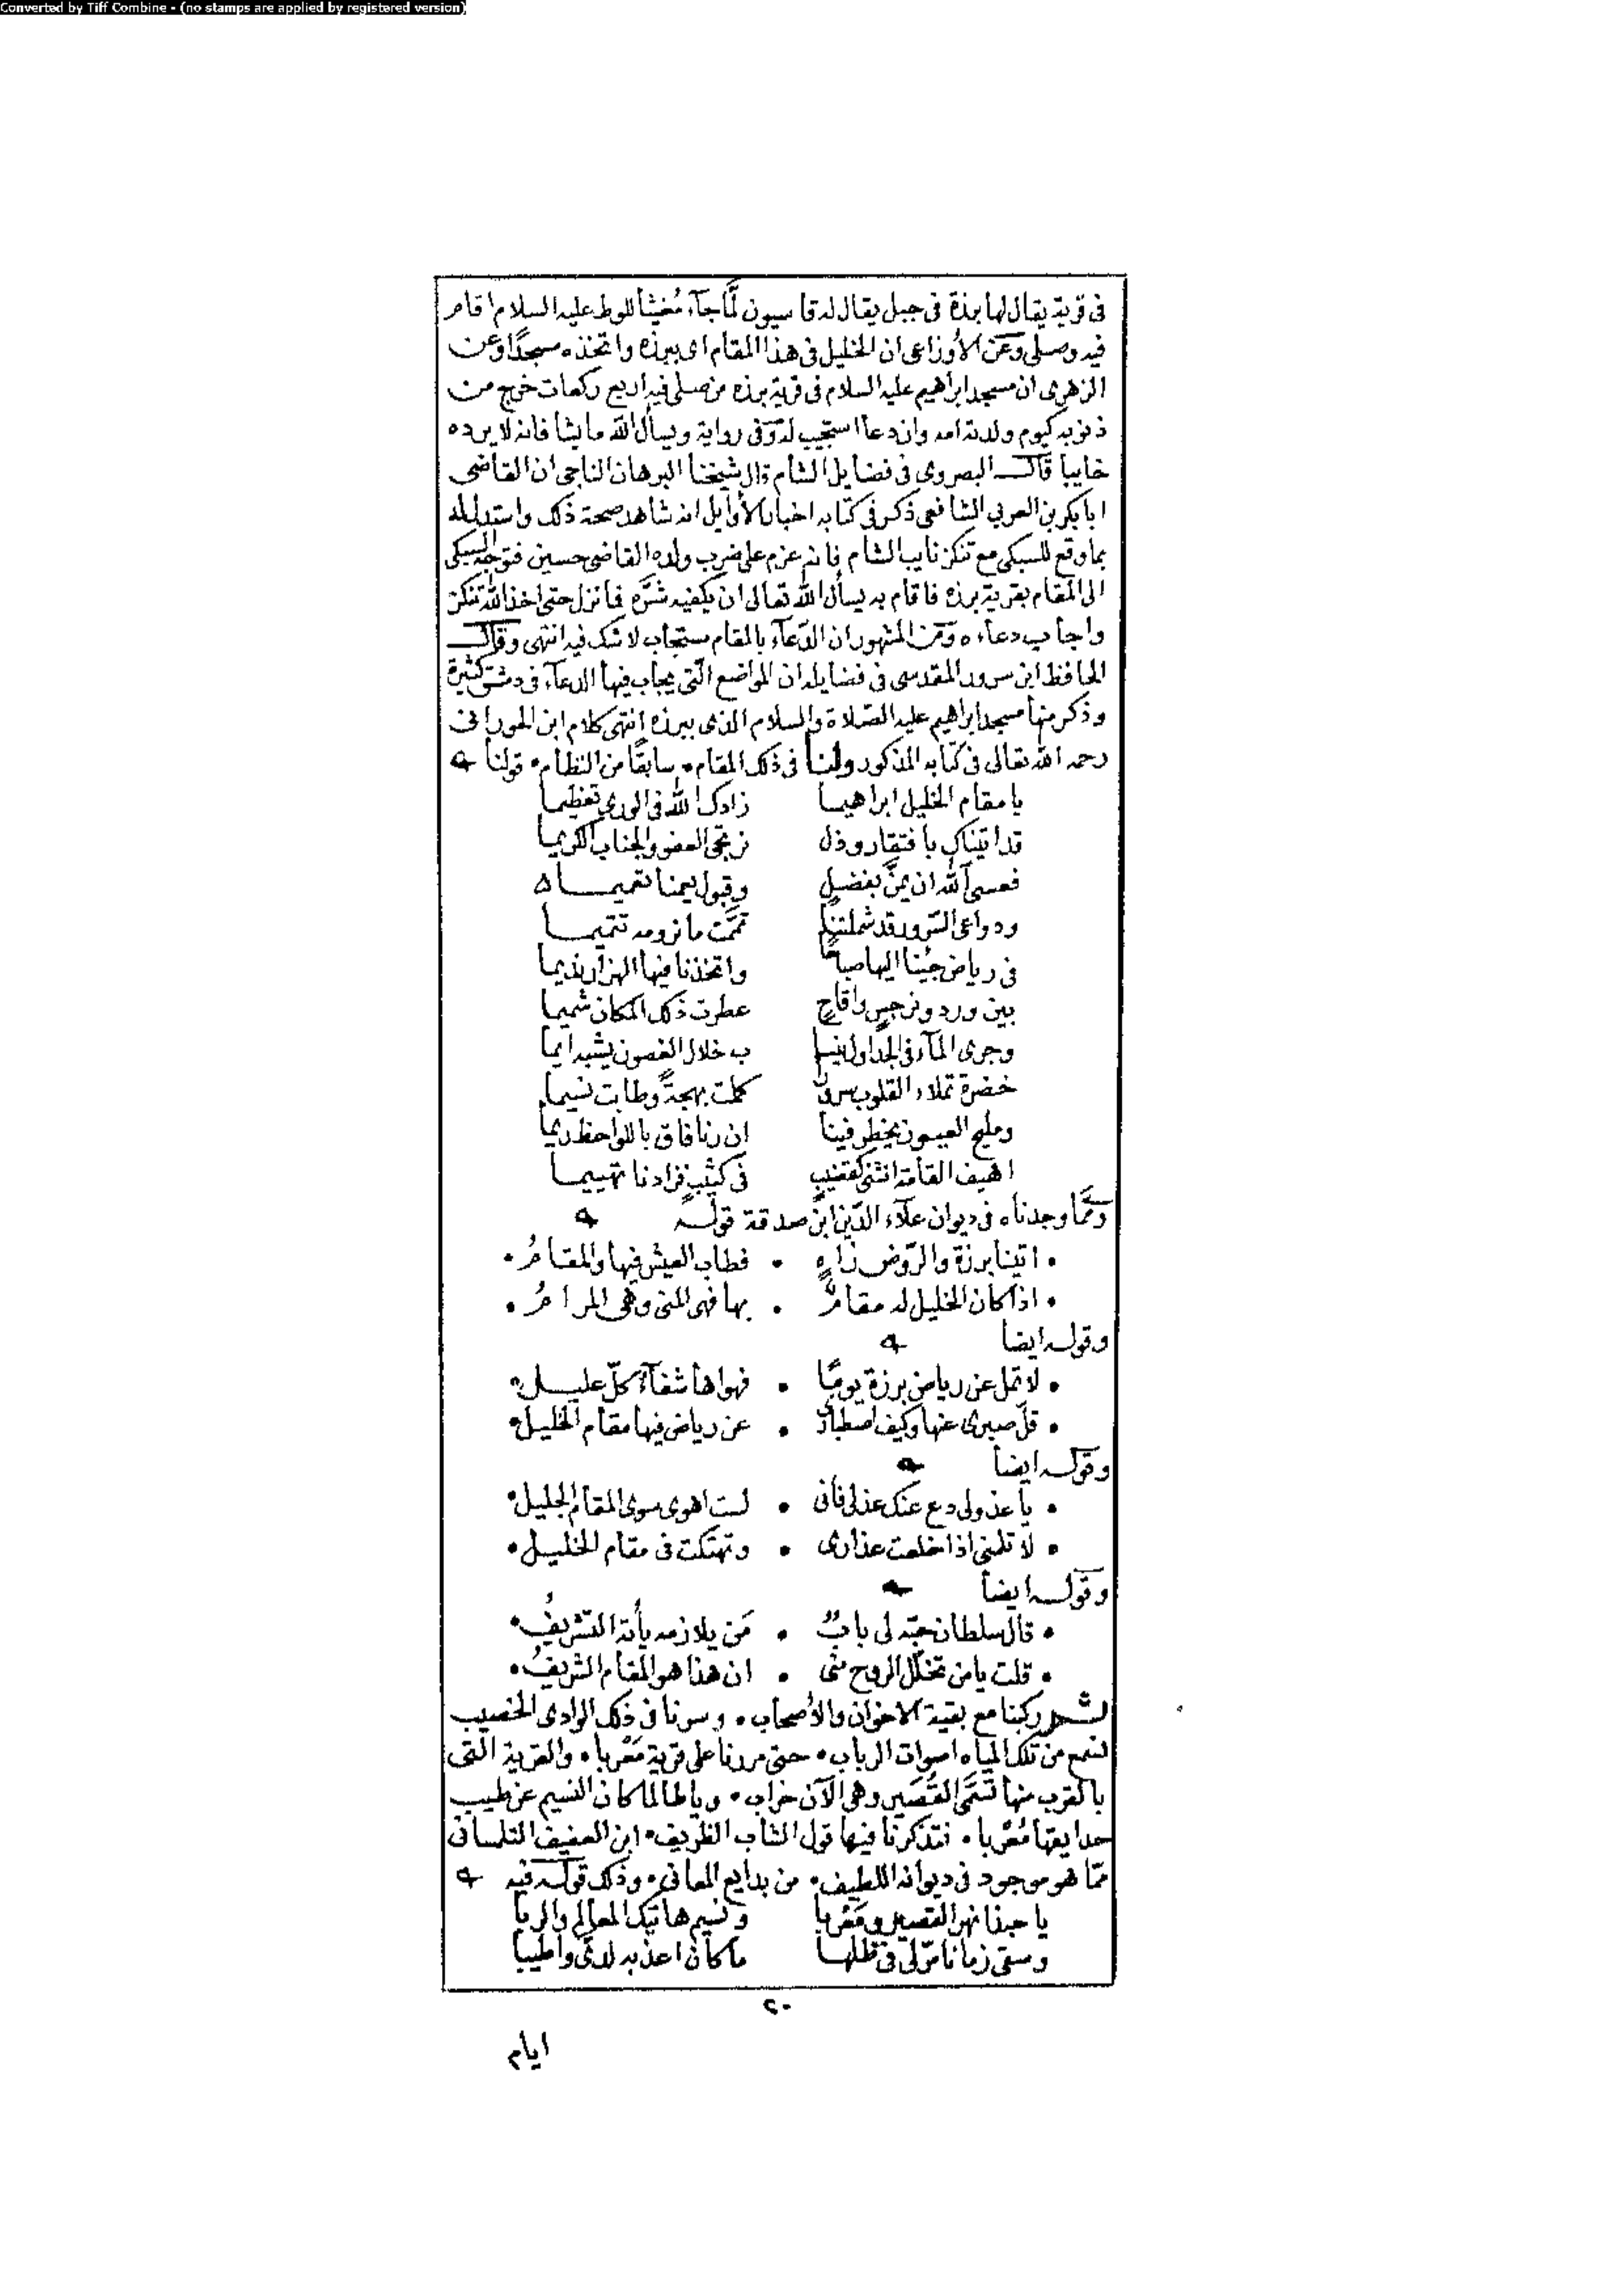 Converted by Tiff Combine - (no stamps are applied by registered version)
فى قرية يقال لها برزة فى جبل يقال له قاسيون لمّا جآء مُغيثا للوط عليه السلام اقام
فيه وصلى وعن الأوزاعى ان الخليل فى هذا المقام اى ببرزه واتخذه مسجدًا وعن
الزهرى ان مسجد ابراهيم عليه السلام فى قرية برزه من صلى فيه اربع ركعات خرج من
ذنوبه كيوم ولدته امه وان دعا استجيب له وفى رواية ويسأل الله ما يشا فانه لا يرده
خايبا قال البصروى فى فضايل الشام قال شيخنا البرهان الناجى ان القاضى
ابا بكر بن العربى الشافعى ذكر فى كتابه اخبار الأوايل انه شاهد صحة ذلك واستدل له
بما وقع للسبكى مع تنكز نايب الشام فانه عزم على ضرب ولده القاضى حسين فتوجه السبكى
الى المقام بقرية برزه فاقام به يسأل الله تعالى ان يكفيه شرّه فما نزل حتى اخذ الله تنكز
واجاب دعاءه ومن المشهور ان الدّعآء بالمقام مستجاب لا شك فيه انتهى وقال
الحافظ ابن سرور المقدسى فى فضايله ان المواضع الّتى يجاب فيها الدعآء فى دمشق كثيرة
وذكر منها مسجد ابراهيم عليه الصّلاة والسلام الذى ببرزه انتهى كلام ابن الحورانى
رحمه الله تعالى فى كتابه المذكور ولنا فى ذلك المقام • سابقًا من النظام • قولنا
يا مقام الخليل ابراهيما زادك الله فى الورى تعظيما
قد اتيناك بافتقار وذل نرتجى العفو والجناب الكريما
فعسى الله ان يمنّ بفضلٍ وقبول يعمنا تعميما
ودواعى السّرور قد شملتنا تمّمت ما نرومه تتميما
فى رياض جينا اليها صباحًا واتخذنا فيها الهزار نديما
بين ورد ونرجسٍ واقاحٍ عطرت ذلك المكان شميما
وجرى المآء فى الجداول ينسا ب خلال الغصون يشبه ايما
خضرة تملاء القلوب سرورًا كملت بهجةً وطابت نسيما
ومليح العيون يخطر فينا ان رنا فاق باللواحظ ريما
اهيف القامة انثنى كقضيبٍ فى كثيبٍ فزادنا تهييما
وممّا وجدناه فى ديوان علآء الدّين ابن صدقة قوله
• اتينا برزة والرّوض زاهٍ • فطاب العيش فيها والمقامُ •
• اذا كان الخليل له مقامٌ • بها فهى المنى وهى المرامُ •
وقوله ايضا
• لا تمل عن رياض برزة يومًا • فهواها شفآء كلّ عليل •
• قلّ صبرى عنها وكيف اصطبارٌ • عن رياض فيها مقام الخليل •
وقوله ايضا
• يا عذولى دع عنك عذلى فانى • لست اهوى سوى المقام الجليل •
• لا تلمنى اذا خلعت عذارى • وتهتكت فى مقام الخليل •
وقوله ايضا
• قال سلطان حبّه لى بابٌ • مَن يلازمه يأته التشريفُ •
• قلت يا من تخلّل الروح منّى • ان هذا هو المقام الشريفُ •
ثم ركبنا مع بقية الاخوان والأصحاب • وسرنا فى ذلك الوادى الخصيب
نسمع من تلك المياه اصوات الرباب • حتى مررنا على قرية مَعْربا • والقرية الّتى
بالقرب منها تسمّى القُصَير وهى الآن خراب • ويا طالما كان النسيم عن طيب
حدايقها مُعْربا • فتذكرنا فيها قول الشاب الظريف • ابن العفيف التلمسانى
ممّا هو موجود فى ديوانه اللطيف • من بدايع المعانى • وذلك قوله فيه
يا حبذا نهر القصير ومَعْربا ونسيم هاتيك المعالم والربا
وسقى زمانا مرّ لى فى ظلها ما كان اعذبه لدىّ واطيبا
٢٠
ايام